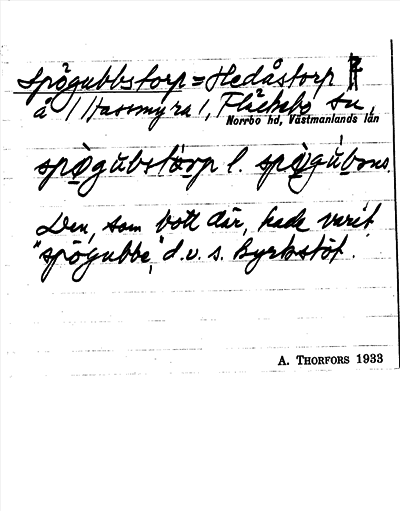 Spögubbstorp = Hedåstorp
å /Hassmyra/, Fläckebo sn,
Norrbo hd, Västmanlands län
spö̀gŭbstȯrp l. spö̀gŭbȯns.
Den, som bott där, hade varit
"spögubbe", d.v.s. Byrkstöt.
A. THORFORS 1933